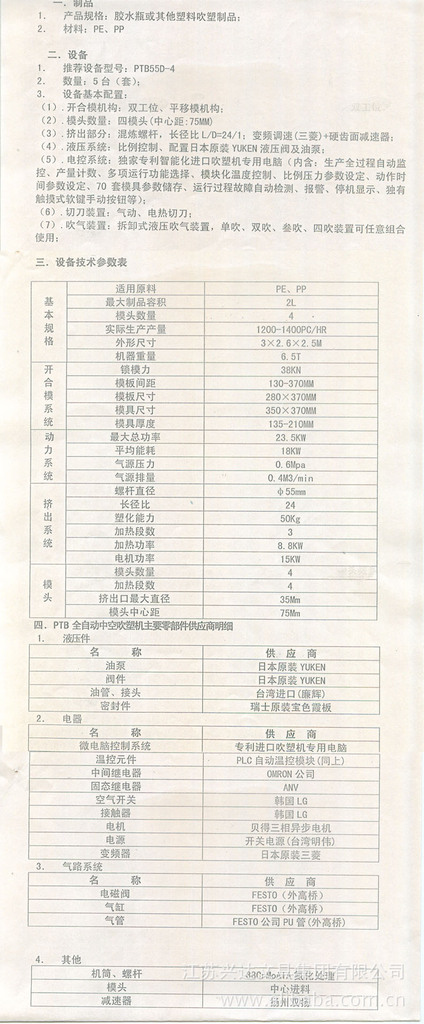 一. 制品
1. 产品规格: 胶水瓶或其他塑料吹塑制品;
2. 材料: PE、PP
二. 设备
1. 推荐设备型号: PTB55D-4
2. 数量: 5台(套);
3. 设备基本配置:
(1). 开合模机构: 双工位、平移模机构;
(2). 模头数量: 四模头(中心距:75MM)
(3). 挤出部分: 混炼螺杆, 长径比L/D=24/1; 变频调速(三菱)+硬齿面减速器;
(4). 液压系统: 比例控制、配置日本原装YUKEN液压阀及油泵;
(5). 电控系统: 独家专利智能化进口吹塑机专用电脑(内含: 生产全过程自动监
控、产量计数、多项运行功能选择、模块化温度控制、比例压力参数设定、动作时
间参数设定、70套模具参数储存、运行过程故障自动检测、报警、停机显示、独有
触摸式软键手动按钮等);
(6). 切刀装置: 气动、电热切刀;
(7). 吹气装置: 拆卸式液压吹气装置, 单吹、双吹、叁吹、四吹装置可任意组合
使用;
三. 设备技术参数表
基本规格
适用原料 PE、PP
最大制品容积 2L
模头数量 4
实际生产产量 1200-1400PC/HR
外形尺寸 3×2.6×2.5M
机器重量 6.5T
开合模系统
锁模力 38KN
模板间距 130-370MM
模板尺寸 280×370MM
模具尺寸 350×370MM
模具厚度 135-210MM
动力系统
最大总功率 23.5KW
平均能耗 18KW
气源压力 0.6Mpa
气源排量 0.4M3/min
挤出系统
螺杆直径 φ55mm
长径比 24
塑化能力 50Kg
加热段数 3
加热功率 8.8KW
电机功率 15KW
模头
模头数量 4
加热段数 4
挤出口最大直径 35Mm
模头中心距 75Mm
四. PTB 全自动中空吹塑机主要零部件供应商明细
1. 液压件
名 称 供 应 商
油泵 日本原装YUKEN
阀件 日本原装YUKEN
油管、接头 台湾进口(廉辉)
密封件 瑞士原装宝色霞板
2. 电器
名 称 供 应 商
微电脑控制系统 专利进口吹塑机专用电脑
温控元件 PLC自动温控模块(同上)
中间继电器 OMRON公司
固态继电器 ANV
空气开关 韩国LG
接触器 韩国LG
电机 贝得三相异步电机
电源 开关电源(台湾明伟)
变频器 日本原装三菱
3. 气路系统
名 称 供 应 商
电磁阀 FESTO(外高桥)
气缸 FESTO(外高桥)
气管 FESTO公司PU管(外高桥)
4. 其他
机筒、螺杆 氮化处理
模头 中心进料
减速器